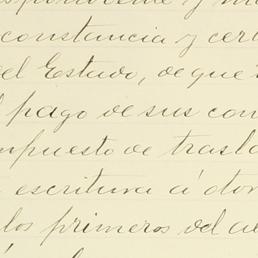 y
constancia y cer
del Estado, de que
l pago de sus con
mpuesto de trasla
escritura á otor
los primeros del a